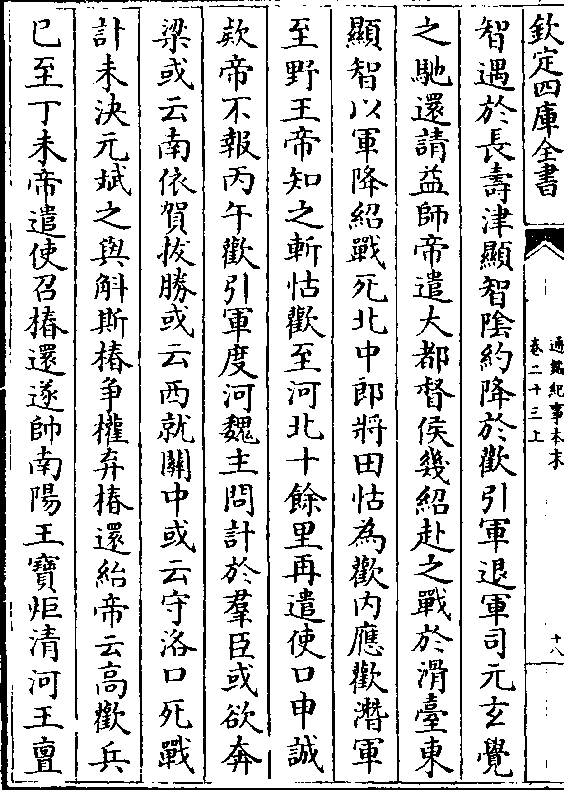 欽定四庫全書
通鑑紀事本末
卷二十三上
十八
智遇於長壽津顯智陰約降於歡引軍退軍司元玄覺
之馳還請益師帝遣大都督侯幾紹赴之戰於滑臺東
顯智以軍降紹戰死北中郎將田怙為歡內應歡潛軍
至野王帝知之斬怙歡至河北十餘里再遣使口申誠
款帝不報丙午歡引軍度河魏主問計於羣臣或欲奔
梁或云南依賀拔勝或云西就關中或云守洛口死戰
計未決元斌之與斛斯椿爭權弃椿還紿帝云高歡兵
已至丁未帝遣使召椿還遂帥南陽王寶炬清河王亶